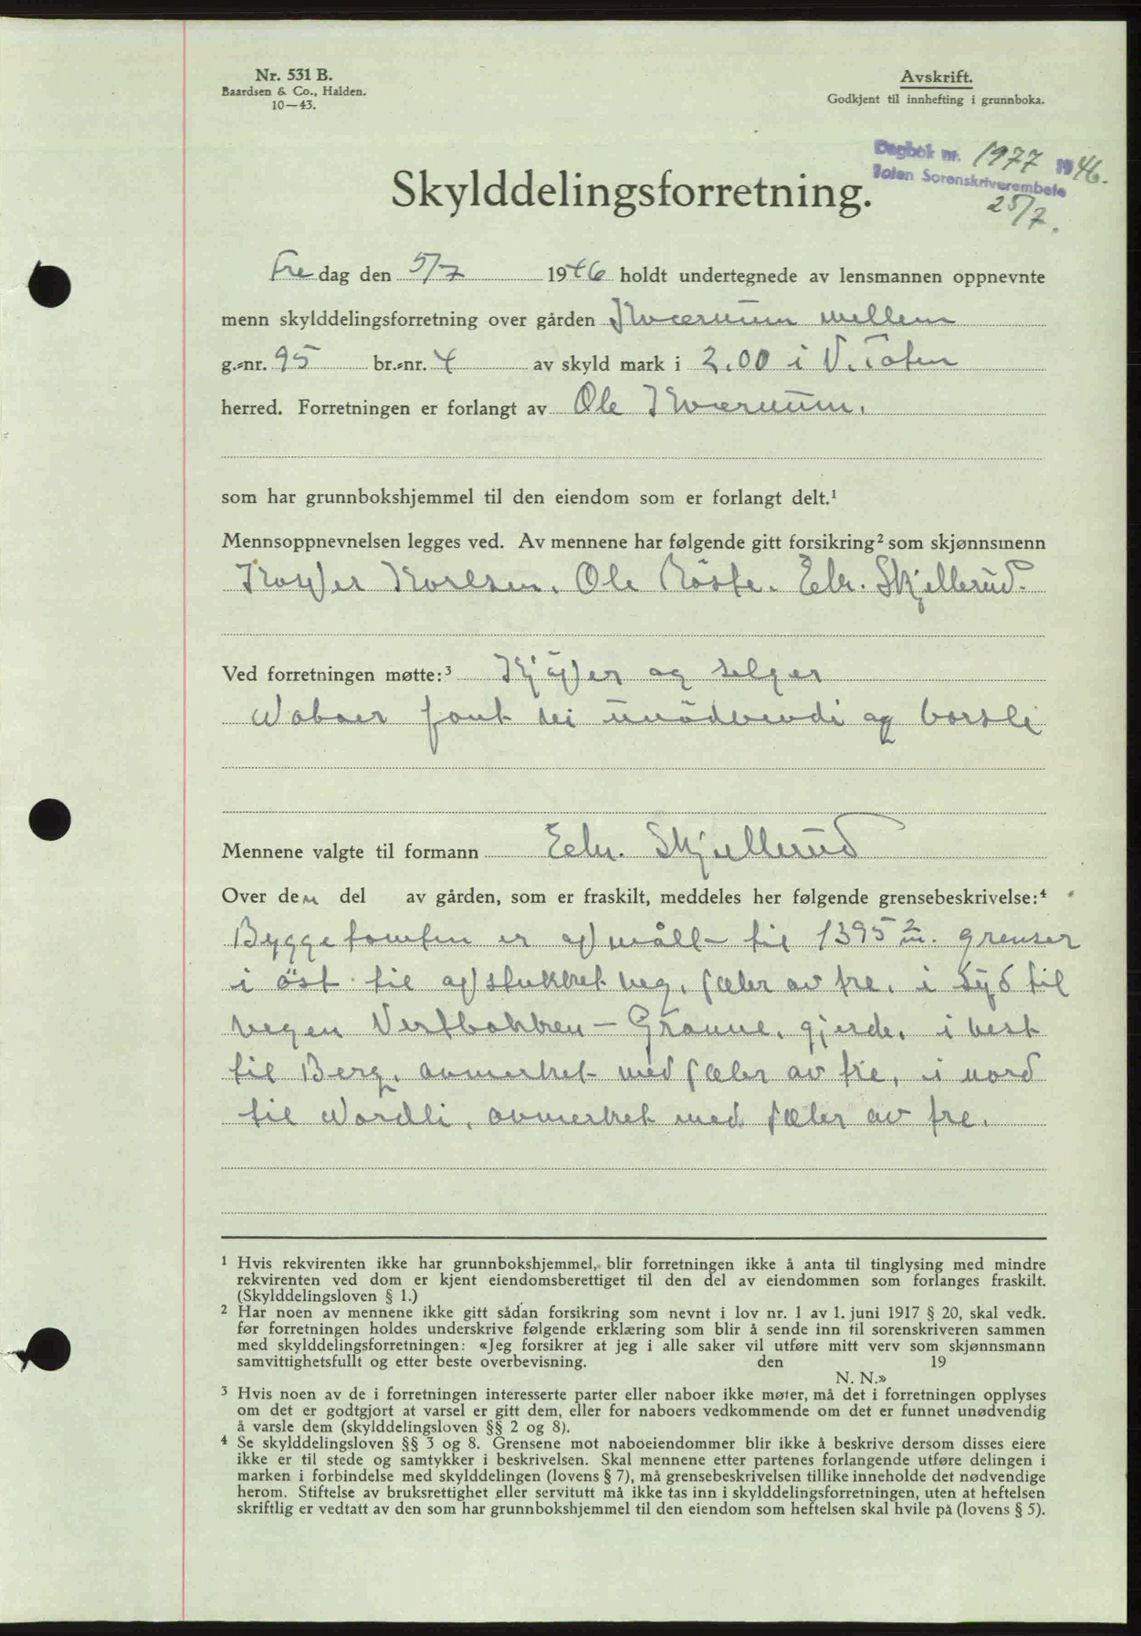 Nr. 531 B.
Baardsen & Co., Halden.
10—43.
Avskrift.
Godkjent til innhefting i grunnboka.
Dagbok nr. 1977 1946.
Toten Sorenskriverembete
25/7.
Skylddelingsforretning.
Fredag den 5/7 1946 holdt undertegnede av lensmannen oppnevnte
menn skylddelingsforretning over gården Kværnum mellem
g.-nr. 95 br.-nr. 4 av skyld mark i 2.00 i V. Toten
herred. Forretningen er forlangt av Ole Kværnum.
som har grunnbokshjemmel til den eiendom som er forlangt delt.¹
Mennsoppnevnelsen legges ved. Av mennene har følgende gitt forsikring² som skjønnsmenn
Ole Røste. Edv. Skjellerud.
Ved forretningen møtte:³ Kjøper og selger
Naboer fant vi unødvendi og varsle
Mennene valgte til formann Edv. Skjellerud
Over den del av gården, som er fraskilt, meddeles her følgende grensebeskrivelse:⁴
Byggetomten er opmålt til 1395 m². grenser
i öst til opstukket veg, pæler av tre, i Syd til
vegen Vestbakken — Granne, gjerde, i vest
til Berg, avmerket med pæler av tre, i nord
til Nordli, avmerket med pæler av tre.
¹ Hvis rekvirenten ikke har grunnbokshjemmel, blir forretningen ikke å anta til tinglysing med mindre
rekvirenten ved dom er kjent eiendomsberettiget til den del av eiendommen som forlanges fraskilt.
(Skylddelingsloven § 1.)
² Har noen av mennene ikke gitt sådan forsikring som nevnt i lov nr. 1 av 1. juni 1917 § 20, skal vedk.
før forretningen holdes underskrive følgende erklæring som blir å sende inn til sorenskriveren sammen
med skylddelingsforretningen: «Jeg forsikrer at jeg i alle saker vil utføre mitt verv som skjønnsmann
samvittighetsfullt og etter beste overbevisning. den 19
N. N.»
³ Hvis noen av de i forretningen interesserte parter eller naboer ikke møter, må det i forretningen opplyses
om det er godtgjort at varsel er gitt dem, eller for naboers vedkommende om det er funnet unødvendig
å varsle dem (skylddelingsloven §§ 2 og 8).
⁴ Se skylddelingsloven §§ 3 og 8. Grensene mot naboeiendommer blir ikke å beskrive dersom disses eiere
ikke er til stede og samtykker i beskrivelsen. Skal mennene etter partenes forlangende utføre delingen i
marken i forbindelse med skylddelingen (lovens § 7), må grensebeskrivelsen tillike inneholde det nødvendige
herom. Stiftelse av bruksrettighet eller servitutt må ikke tas inn i skylddelingsforretningen, uten at heftelsen
skriftlig er vedtatt av den som har grunnbokshjemmel til den eiendom som heftelsen skal hvile på (lovens § 5).